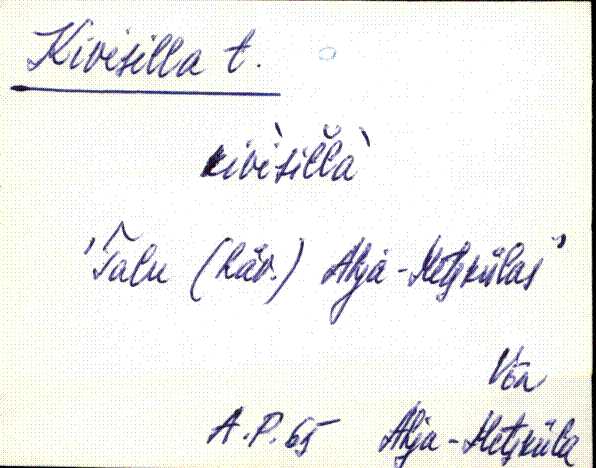 Kivisilla t.
kivìsiĺlà
'Talu (häv.) Ahja-Metskülas'
Võn
A.P. 65 Ahja-Metsküla